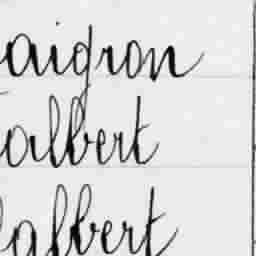 aigron
albert
afbert